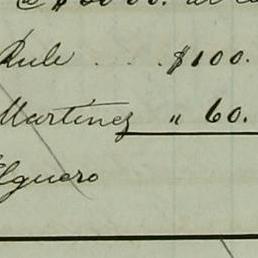 @ $5000. at
Rule . . . . $100.
Martinez " 60.
Elguero